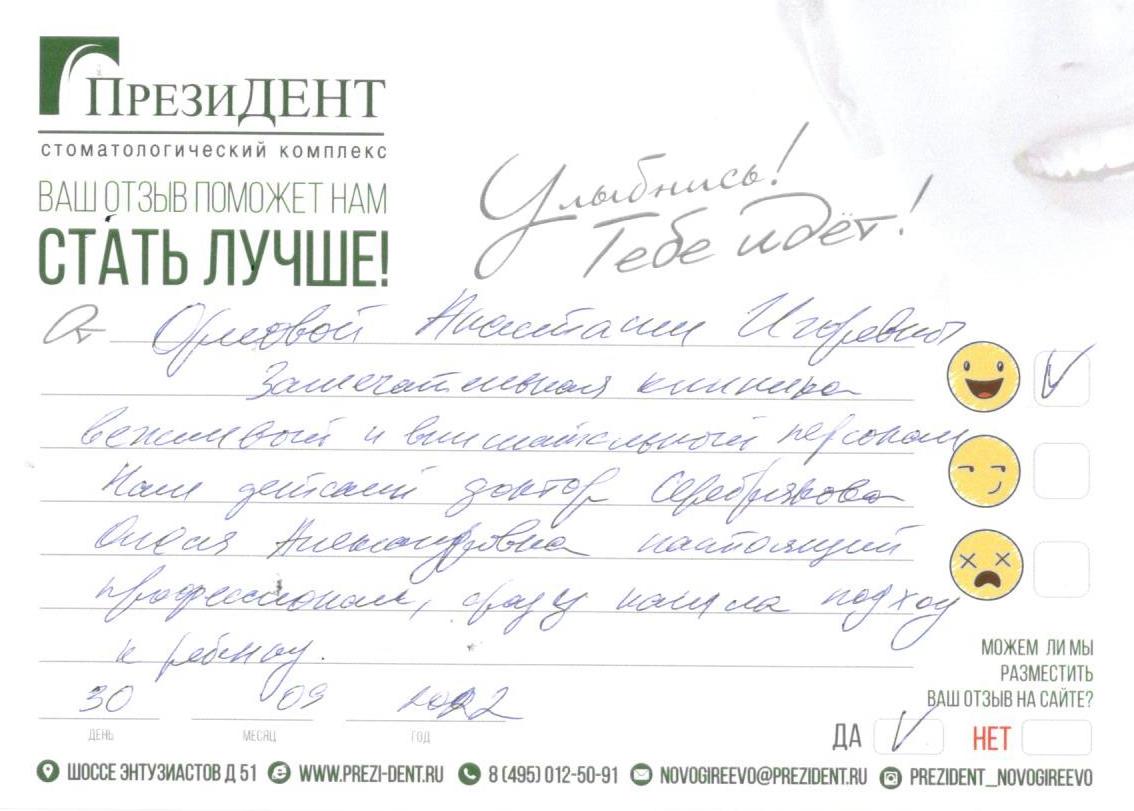 ПрезиДЕНТ
стоматологический комплекс
ВАШ ОТЗЫВ ПОМОЖЕТ НАМ
СТАТЬ ЛУЧШЕ!
Улыбнись!
Тебе идёт!
От Орловой Анастасии Игоревны
Замечательная клиника
вежливый и внимательный персонал
Наш детский доктор Серебрякова
Олеся Александровна настоящий
профессионал, сразу нашла подход
к ребенку.
30 09 2022
ДЕНЬ МЕСЯЦ ГОД
МОЖЕМ ЛИ МЫ
РАЗМЕСТИТЬ
ВАШ ОТЗЫВ НА САЙТЕ?
ДА НЕТ
ШОССЕ ЭНТУЗИАСТОВ Д 51 WWW.PREZI-DENT.RU 8 (495) 012-50-91 NOVOGIREEVO@PREZIDENT.RU PREZIDENT_NOVOGIREEVO